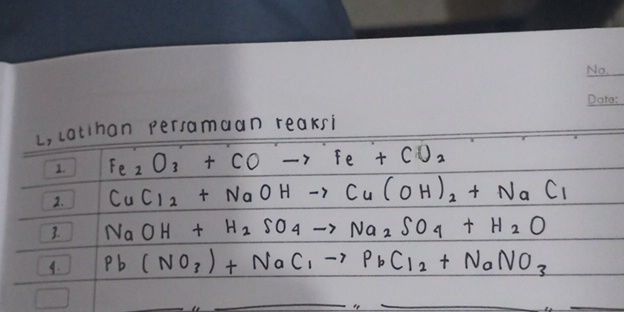 No.
Date:
L, Latihan persamaan reaksi
1. Fe₂O₃ + CO → Fe + CO₂
2. CuCl₂ + NaOH → Cu(OH)₂ + NaCl
3. NaOH + H₂SO₄ → Na₂SO₄ + H₂O
4. Pb(NO₃) + NaCl → PbCl₂ + NaNO₃